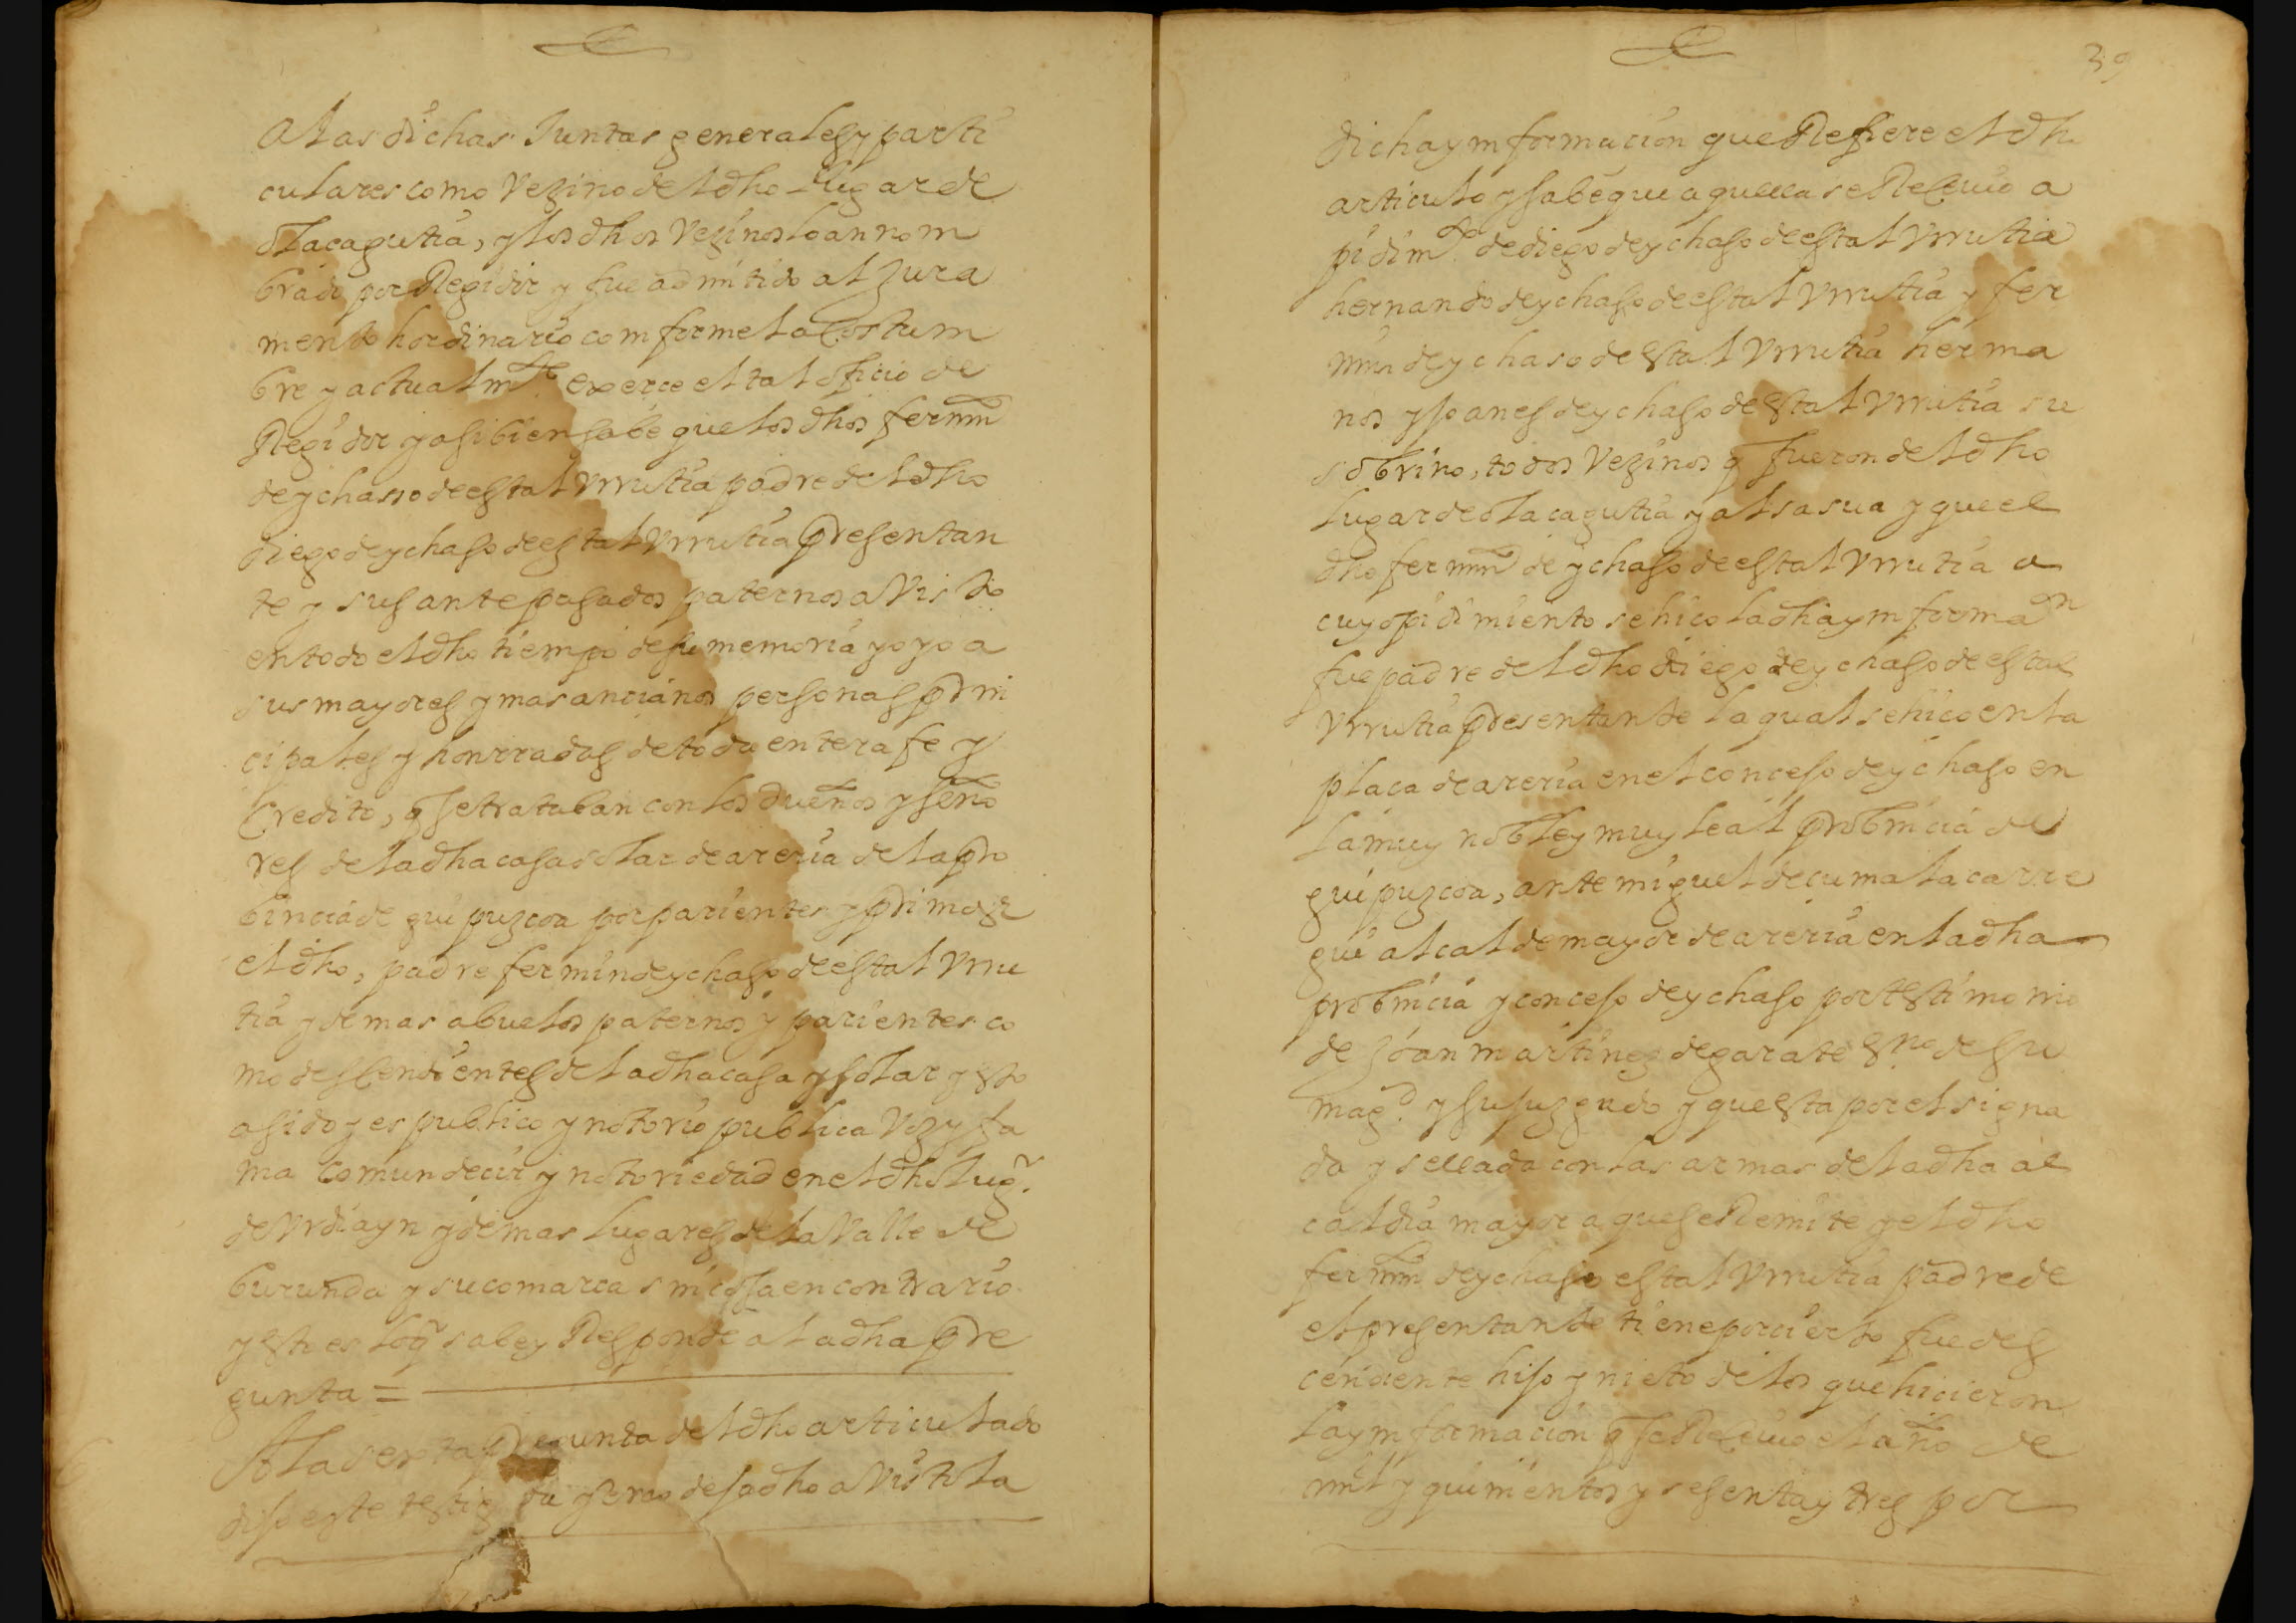 A las dichas Juntas generales y parti
culares como Vezino del dho Lugar de
olacagutia, y los dhos Vezinos lo an nom
brado por Regidor y fue admitido al Jura
mento hordinario comforme la Costum
bre y actualmte exerce el tal oficio de
Regidor y asibien sabe que los dhos fermin
de ychasso de estal Vrrutia padre del dho
diego de ychaso de estal Vrrutia presentan
te y sus antepasados paternos a Visto
en todo el dho tiempo de su memoria y oyo a
sus mayores y mas ancianos personas prin
cipales y honrradas de toda entera fe y
Credito, q se trataban con los dueños y seño
res de la dha casa solar de areria de la pro
bincia de guipuzcoa por parientes y primos
el dho, padre fermin de ychaso de estal Vrru
tia y demas abuelos paternos y parientes co
mo desCendientes de la dha casa y solar y esto
a sido y es publico y notorio publica Voz y fa
ma comun decir y notoriedad en el dho lugr.
de Vrdiayn y demas lugares de la Valle de
burunda y su comarca sin cossa en contrario
y esto es lo q sabe y Responde a la dha pre
gunta =
A la sexta pregunta del dho articulado
dijo este testig da y leydo desadho a Visto la
39
dicha ymformacion que Refiere el dho
articulo y sabe que aquella se ReCiuio a
pidimto de diego de ychaso de estal Vrrutia
hernando de ychaso de estal Vrrutia y fer
min de ychaso de estal Vrrutia herma
nos y joanes de ychaso de estal Vrrutia su
sobrino, todos Vezinos q fueron del dho
lugar de olacagutia y alsasua y que el
dho fermin de ychaso de estal Vrrutia a
cuyo pidimiento se hico la dha ymformaon
fue padre del dho diego de ychaso de estal
Vrrutia presentante la qual se hico en la
placa de areria en el concejo de ychaso en
la muy noble y muy leal probincia de
guipuzcoa, ante miguel de cumalacarre
gui alcalde mayor de areria en la dha
probincia y concejo de ychaso por testimonio
de Joan martinez de garate esno de su
magd. y su juzgado y que esta por el signa
da y sellada con las armas de la dha al
caldia mayor a que se Remite y el dho
fermin de ychaso estal Vrrutia padre de
el presentante tiene por cierto fue des
cendiente hijo y nieto de los que hicieron
la ymformacion q se ReCiuio el año de
mil y quinientos y sesenta y tres por